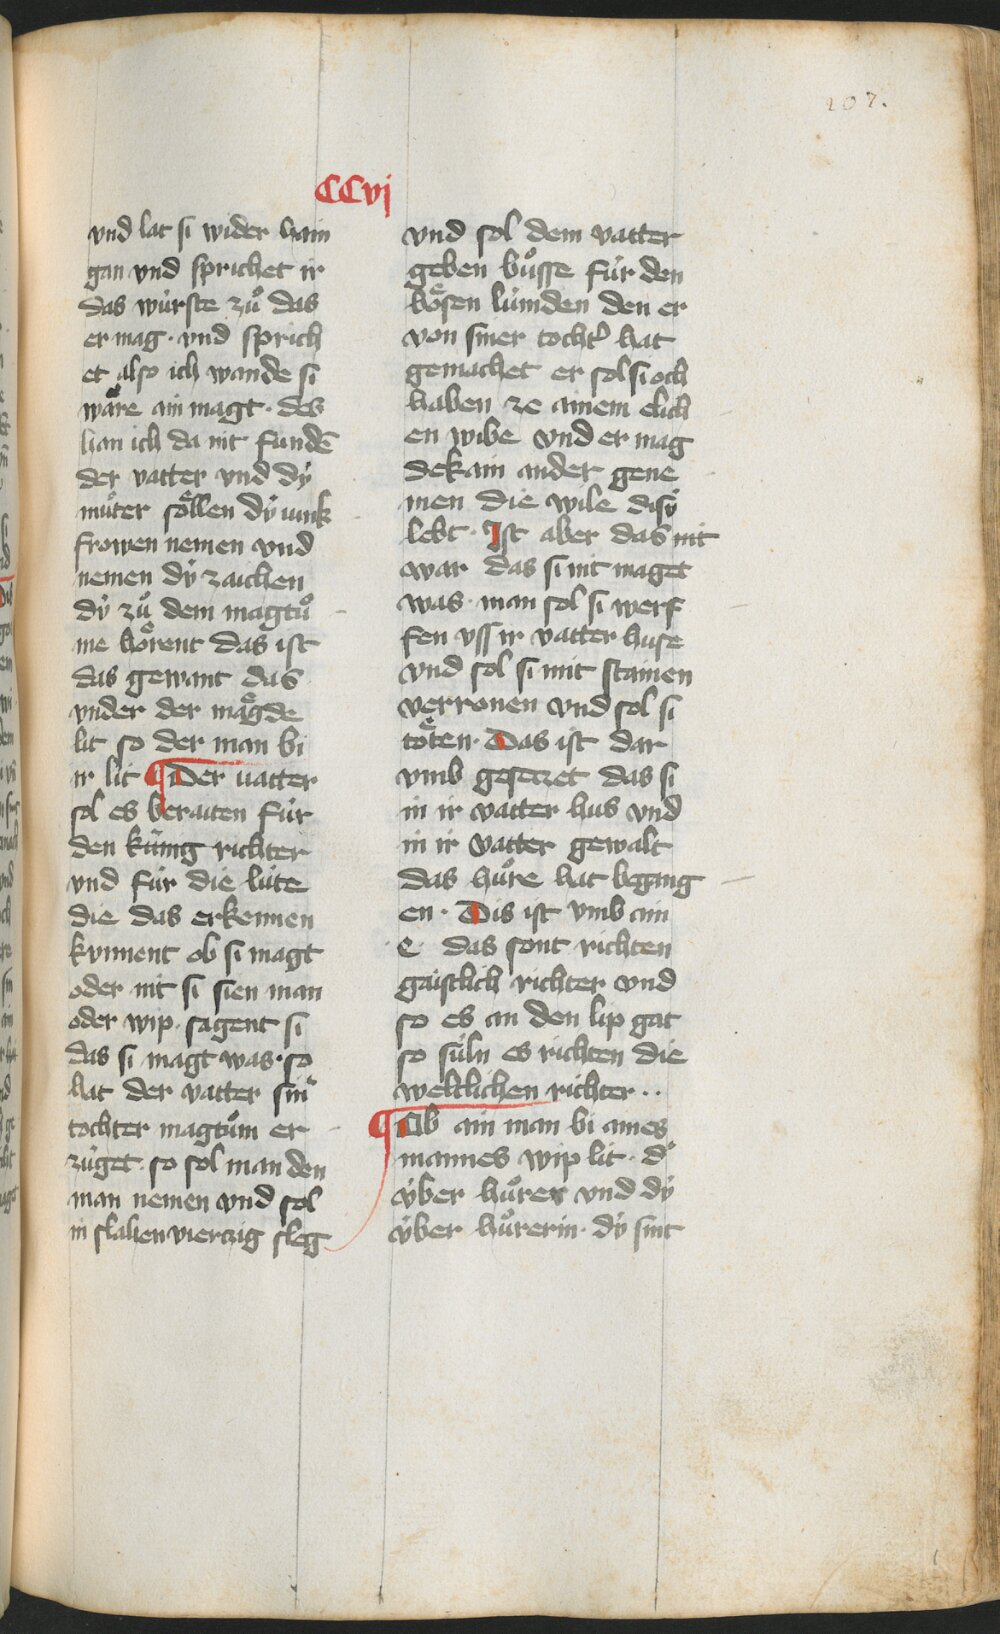 207.
CCvj
vnd lat si wider hain
gan vnd sprichet ir
das wúrste zuͦ das
er mag · vnd sprich
et also ich wande si
waͤre ain magt · des
han ich da nit fundē
der vatter vnd dẏ
muͦter soͤllen dẏ iunk
frowen nemen vnd
nemen dẏ zaichen
dẏ zuͦ dem magtuͦ
me hoͤrent das ist
das gewant das
vnder der maͤgde
lit so der man bi
ir lit ¶ Der uatter
sol es beraiten fúr
den kúnig richter
vnd fúr die lúte
die das erkennen
kvnnent ob si magt
oder nit si sien man
oder wip · sagent si
das si magt was · so
hat der vatter sinͤ
tochter magtuͦm er
zúget · so sol man den
man nemen vnd sol
in slahen vierczig sleg
vnd sol dem vatter
geben buͦsse fúr den
boͤsen lúmden den er
von siner tocht̓ hat
gemachet er sol si och
haben ze ainem elich
en wibe vnd er mag
dekain ander gene
men die wile disẏ
lebt · Ist aber das nit
war das si nit maget
was · man sol si werf
fen vss ir vatter huse
vnd sol si mit stainen
verronen vnd sol si
toͤten · Das ist dar
vmb gesetzet das si
in ir vatter hus vnd
in ir vatter gewalt
das huͦre hat begang
en · Dis ist vmb ain
e · das sont richten
gaistlich richter vnd
so es an den lip gat
so súln es richten die
weltlichen richter ··
¶ Ob ain man bi aines
mannes wip lit · d̓
v́ber huͦrer vnd dẏ
v́ber huͦrerin · dẏ sint